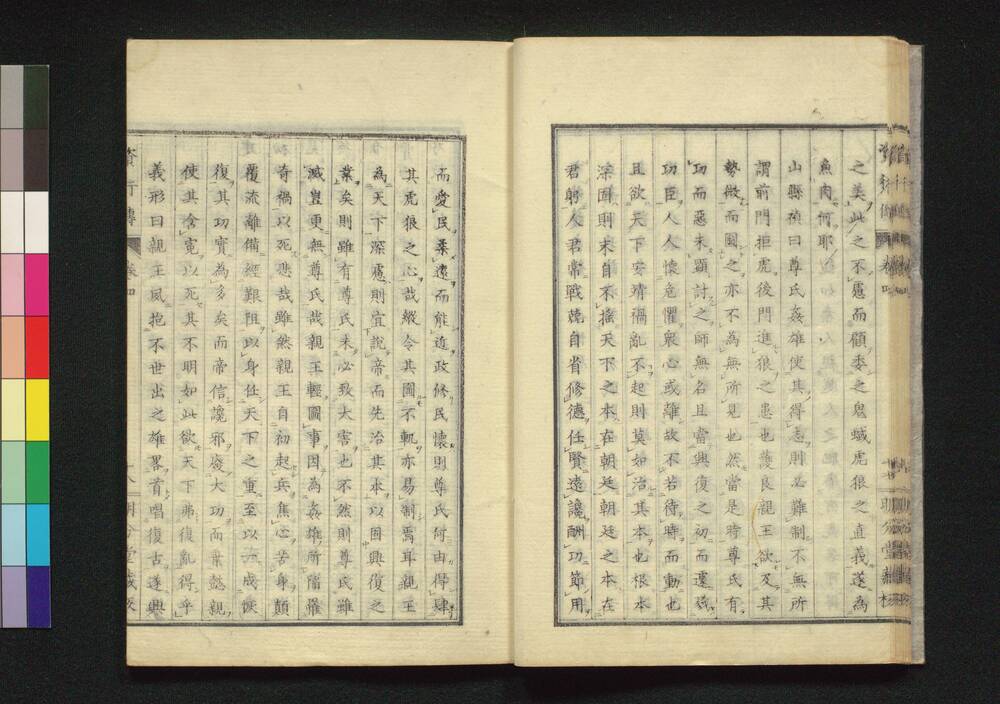 之美此之不慮而顧委之鬼蜮虎狼之直義遂為
魚肉何耶
山縣禎曰尊氏姦雄使其得志則必難制不無所
謂前門拒虎後門進狼之患也護良親王欲及其
勢微而圖之亦不為無所見也然當是時尊氏有
功而惡未顯討之師無名且當興復之初而遽戮
功臣人人懷危懼衆心或離故不若待時而動也
且欲天下安靖禍亂不起則莫如治其本也根本
深固則末自不搖天下之本在朝廷朝廷之本在
君躬人君常戰兢自省修德任賢遠讒酬功節用
而愛民柔遠而能近政修民懷則尊氏何由得肆
其虎狼之心哉縱令其圖不軌亦易制焉耳親王
為天下深慮則宜說帝而先治其本以固興復之
業矣則雖有尊氏未必致大害也不然則尊氏雖
滅豈更無尊氏哉親王輕圖事因為姦雄所陷罹
奇禍以死悲哉雖然親王自初起兵焦心苦身顛
覆流離備經艱阻以身任天下之重至以成恢
復其功實為多矣而帝信讒邪廢大功而棄懿親
使其含冤以死其不明如此欲天下弗復亂得乎
義形曰親王夙抱不世出之雄畧首唱復古遂興
卷四